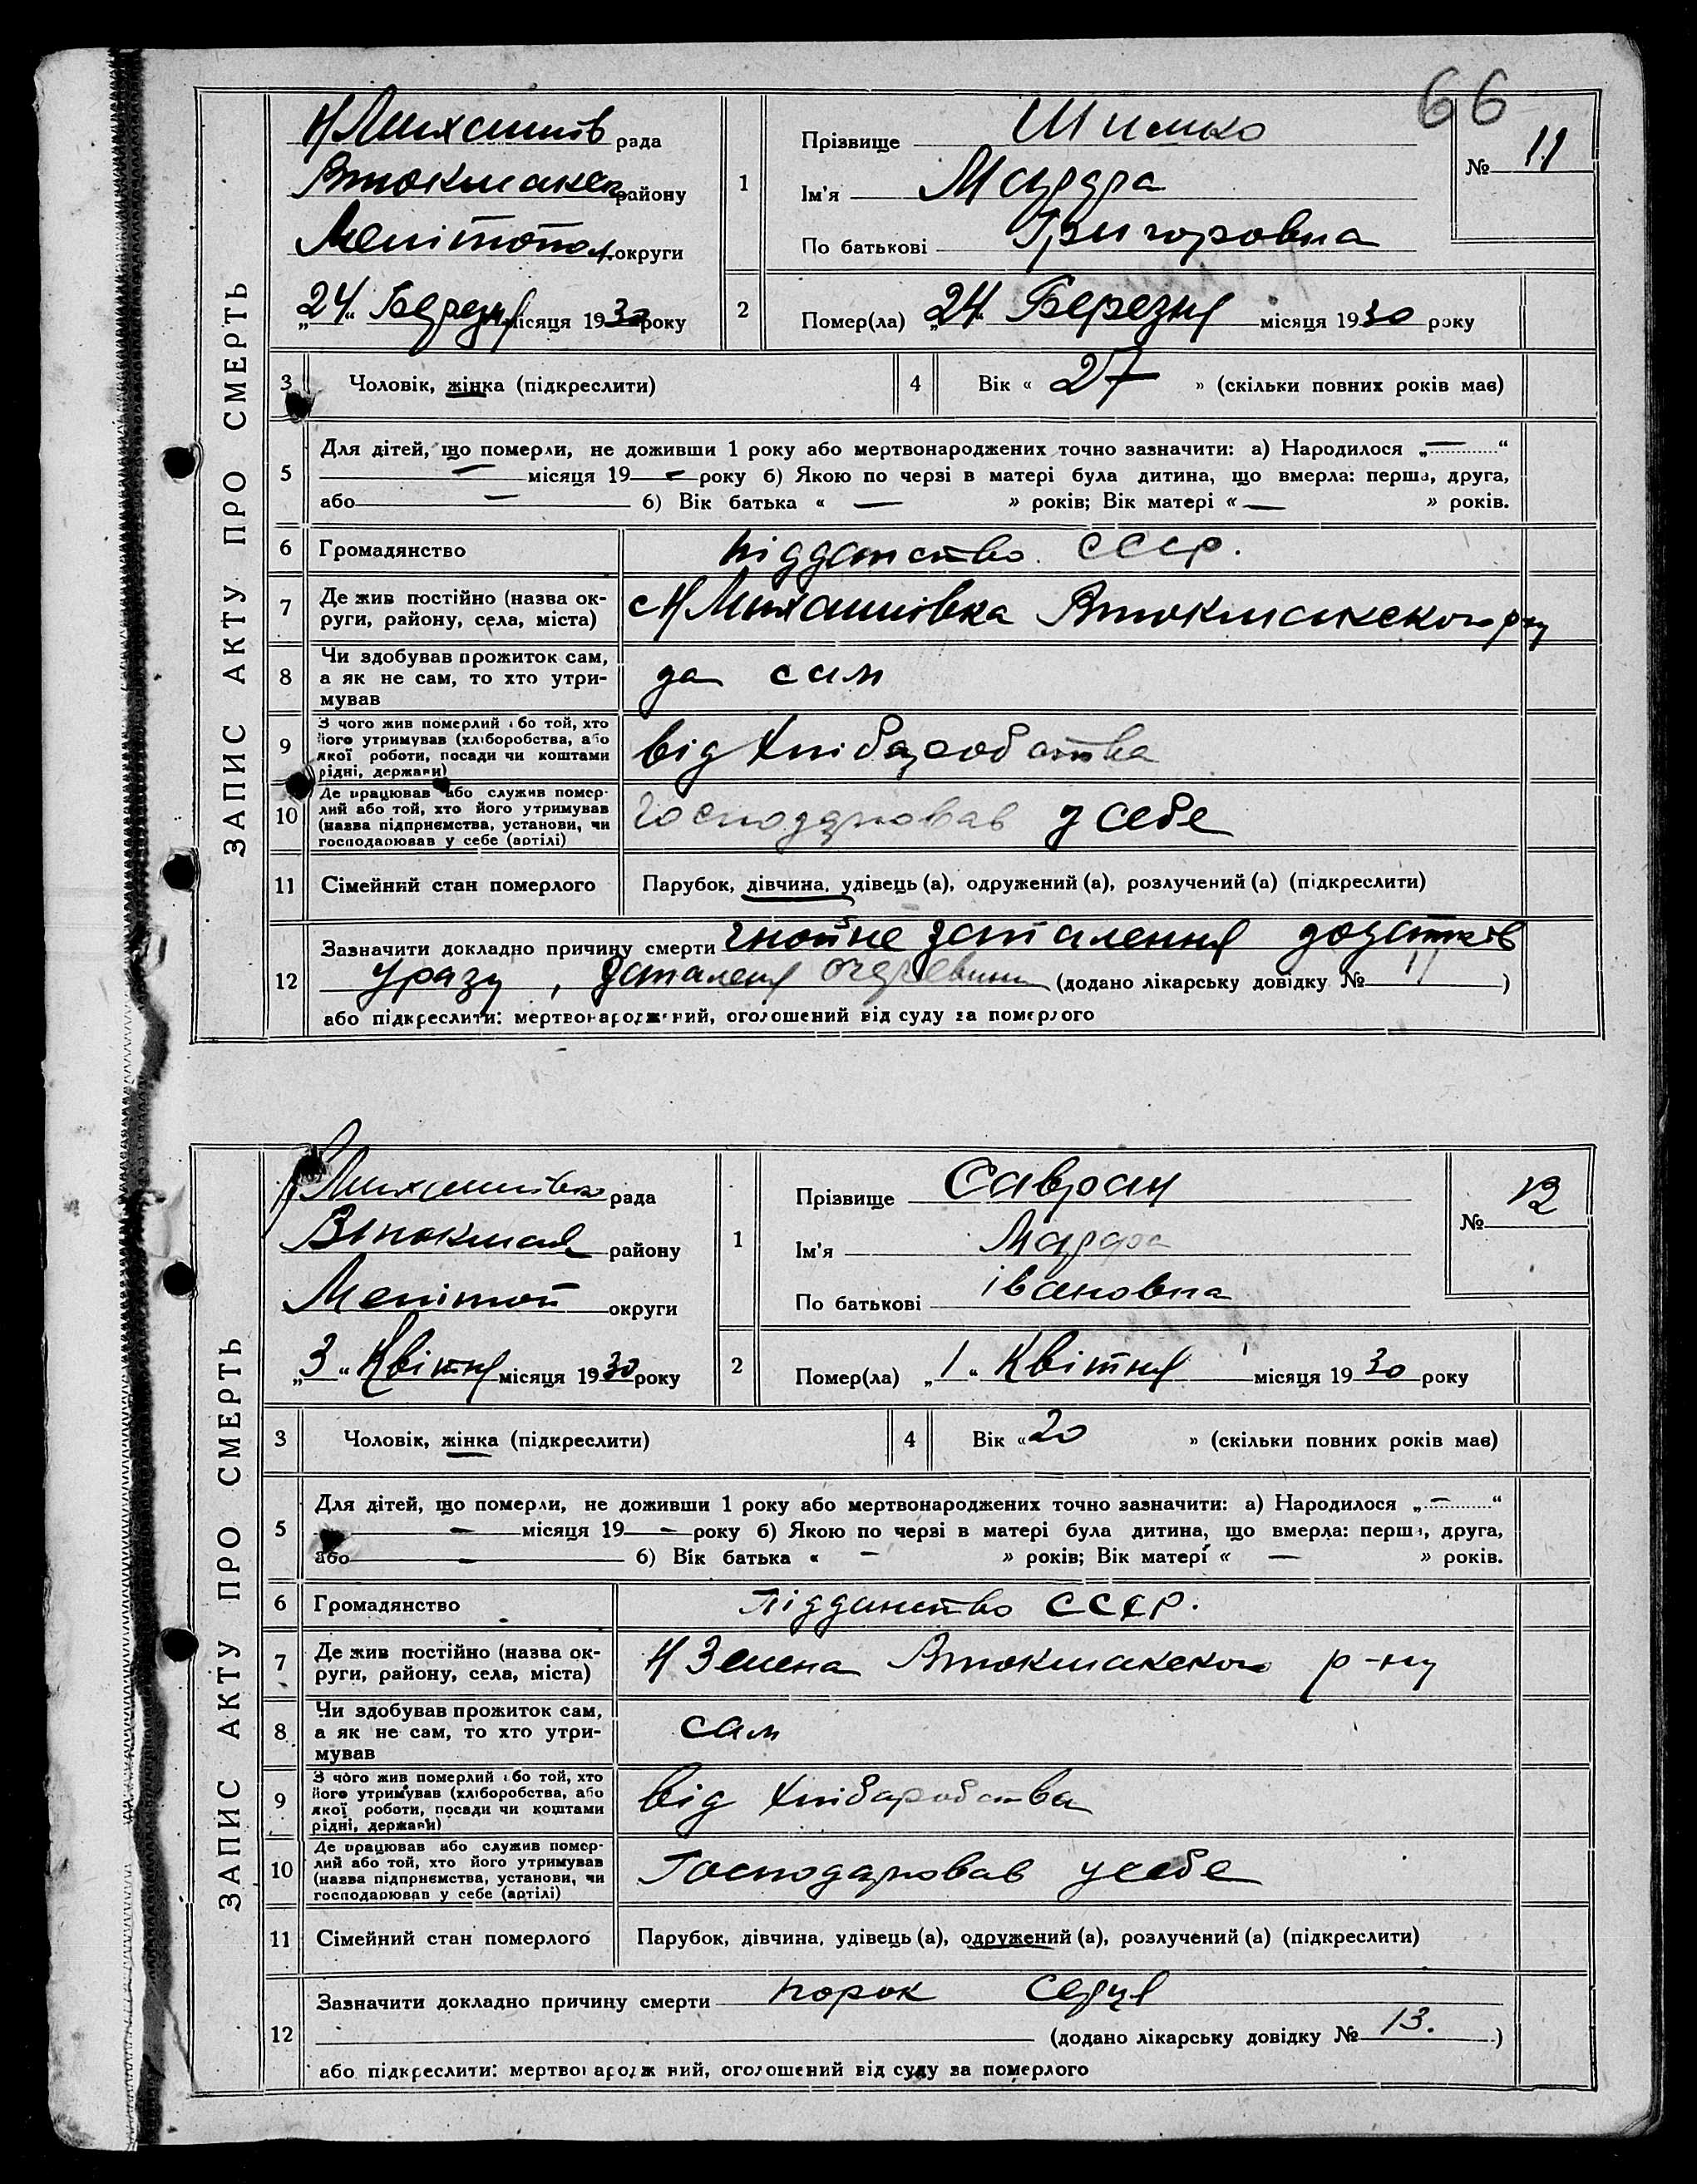 66
ЗАПИС АКТУ ПРО СМЕРТЬ
Н Михайлів рада
Втокмакск району
Мелітопол округи
„24“ Березня місяця 1930 року
1
Прізвище Шимко
Ім'я Марфа
По батькові Григоровна
№ 11
2
Помер(ла) „24“ Березня місяця 1930 року
3 Чоловік, жінка (підкреслити)
4 Вік « 27 » (скільки повних років має)
5 Для дітей, що померли, не доживши 1 року або мертвонароджених точно зазначити: а) Народилося „—“
— місяця 19 — року б) Якою по черзі в матері була дитина, що вмерла: перша, друга,
або — б) Вік батька « — » років; Вік матері « — » років.
6 Громадянство підданство СССР.
7 Де жив постійно (назва ок-
руги, району, села, міста) с Н Михайлівка Втокмакского р-ну
8 Чи здобував прожиток сам,
а як не сам, то хто утри-
мував да сам
9 З чого жив померлий або той, хто
його утримував (хліборобства, або
якої роботи, посади чи коштами
рідні, держави) від Хліборобства
10 Де працював або служив помер-
лий або той, хто його утримував
(назва підприємства, установи, чи
господарював у себе (артілі) Господарював у себе
11 Сімейний стан померлого Парубок, дівчина, удівець (а), одружений (а), розлучений (а) (підкреслити)
12 Зазначити докладно причину смерти гнойне запалення додатків
, запаленя очеревини (додано лікарську довідку № 11)
або підкреслити: мертвонароджений, оголошений від суду за померлого
ЗАПИС АКТУ ПРО СМЕРТЬ
Н Михайлівка рада
Втокмак району
Меліт округи
„3“ Квітня місяця 1930 року
1
Прізвище Савран
Ім'я Марфа
По батькові івановна
№ 12
2
Помер(ла) „1“ Квітня місяця 1930 року
3 Чоловік, жінка (підкреслити)
4 Вік «20 » (скільки повних років має)
5 Для дітей, що померли, не доживши 1 року або мертвонароджених точно зазначити: а) Народилося „—“
— місяця 19 — року б) Якою по черзі в матері була дитина, що вмерла: перша, друга,
або — б) Вік батька « — » років; Вік матері « — » років.
6 Громадянство Підданство СССР.
7 Де жив постійно (назва ок-
руги, району, села, міста) Н Зелена Втокмакского р-ну
8 Чи здобував прожиток сам,
а як не сам, то хто утри-
мував сам
9 З чого жив померлий або той, хто
його утримував (хліборобства, або
якої роботи, посади чи коштами
рідні, держави) від Хліборобства
10 Де працював або служив помер-
лий або той, хто його утримував
(назва підприємства, установи, чи
господарював у себе (артілі) Господарював у себе
11 Сімейний стан померлого Парубок, дівчина, удівець (а), одружений (а), розлучений (а) (підкреслити)
12 Зазначити докладно причину смерти порок серця
(додано лікарську довідку № 13.)
або підкреслити: мертвонароджений, оголошений від суду за померлого